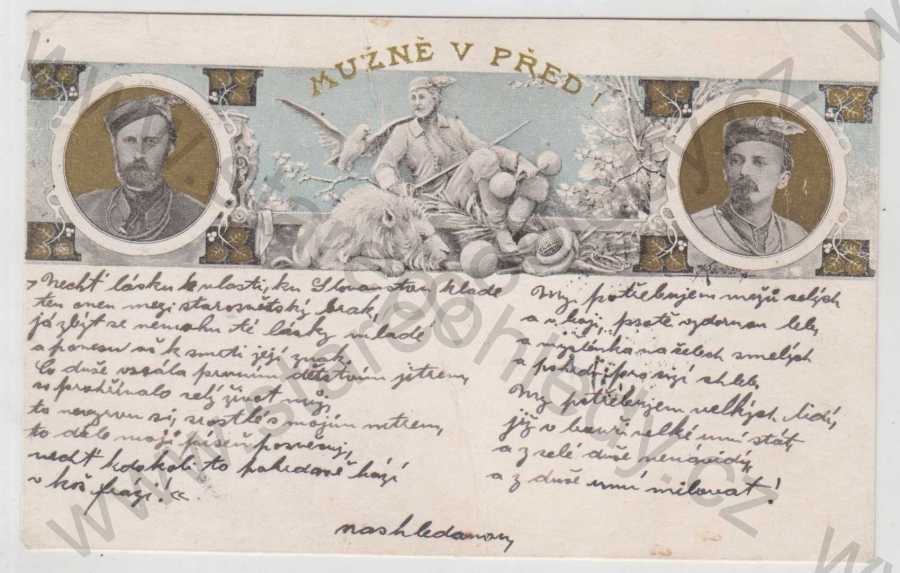 MUŽNĚ V PŘED!
„Nechť lásku k vlasti, ku Slovanstvu klade
ten onen mezi starosvětský brak,
já zbýt se nemohu té lásky mladé
a ponesu až k smrti její znak.
Co duše vssála prvním dětství jitrem,
co prohřívalo celý život můj,
to nervem si, srostlé s mojím nitrem,
to dále moji píseň posvěcuj,
nechť kdokoli to pohrdavě hází
v koš frazí!“
My potřebujem mužů celých
a v boji, psotě vzdornou leb,
a myšlénka na čelech smělých
a pohrdání pro cizí chleb.
My potřebujem velkých lidí,
již v bouři velké umí stát,
a z celé duše nenávidí,
a z duše umí milovat!
nashledanou,
www.stare-pohledy.cz